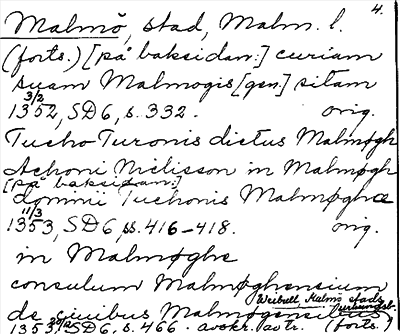 4.
Malmö, stad, Malm. l.
(forts.) [på baksidan:] curiam
suam Malmogis [gen.] sitam
3/2
1352, SD 6, s. 332. orig.
Tucho Turonis dictus Malmøgh
Achoni Niclisson in Malmøgh
[på baksidan:]
domini Tuchonis Malmøghæ
11/3
1353, SD 6, ss. 416–418. orig.
in Malmøghe
consulum Malmøghensium
Weibull, Malmö stads
de civibus Malmøgensibus
1353 SD 6, s. 466. avskr. (forts.)